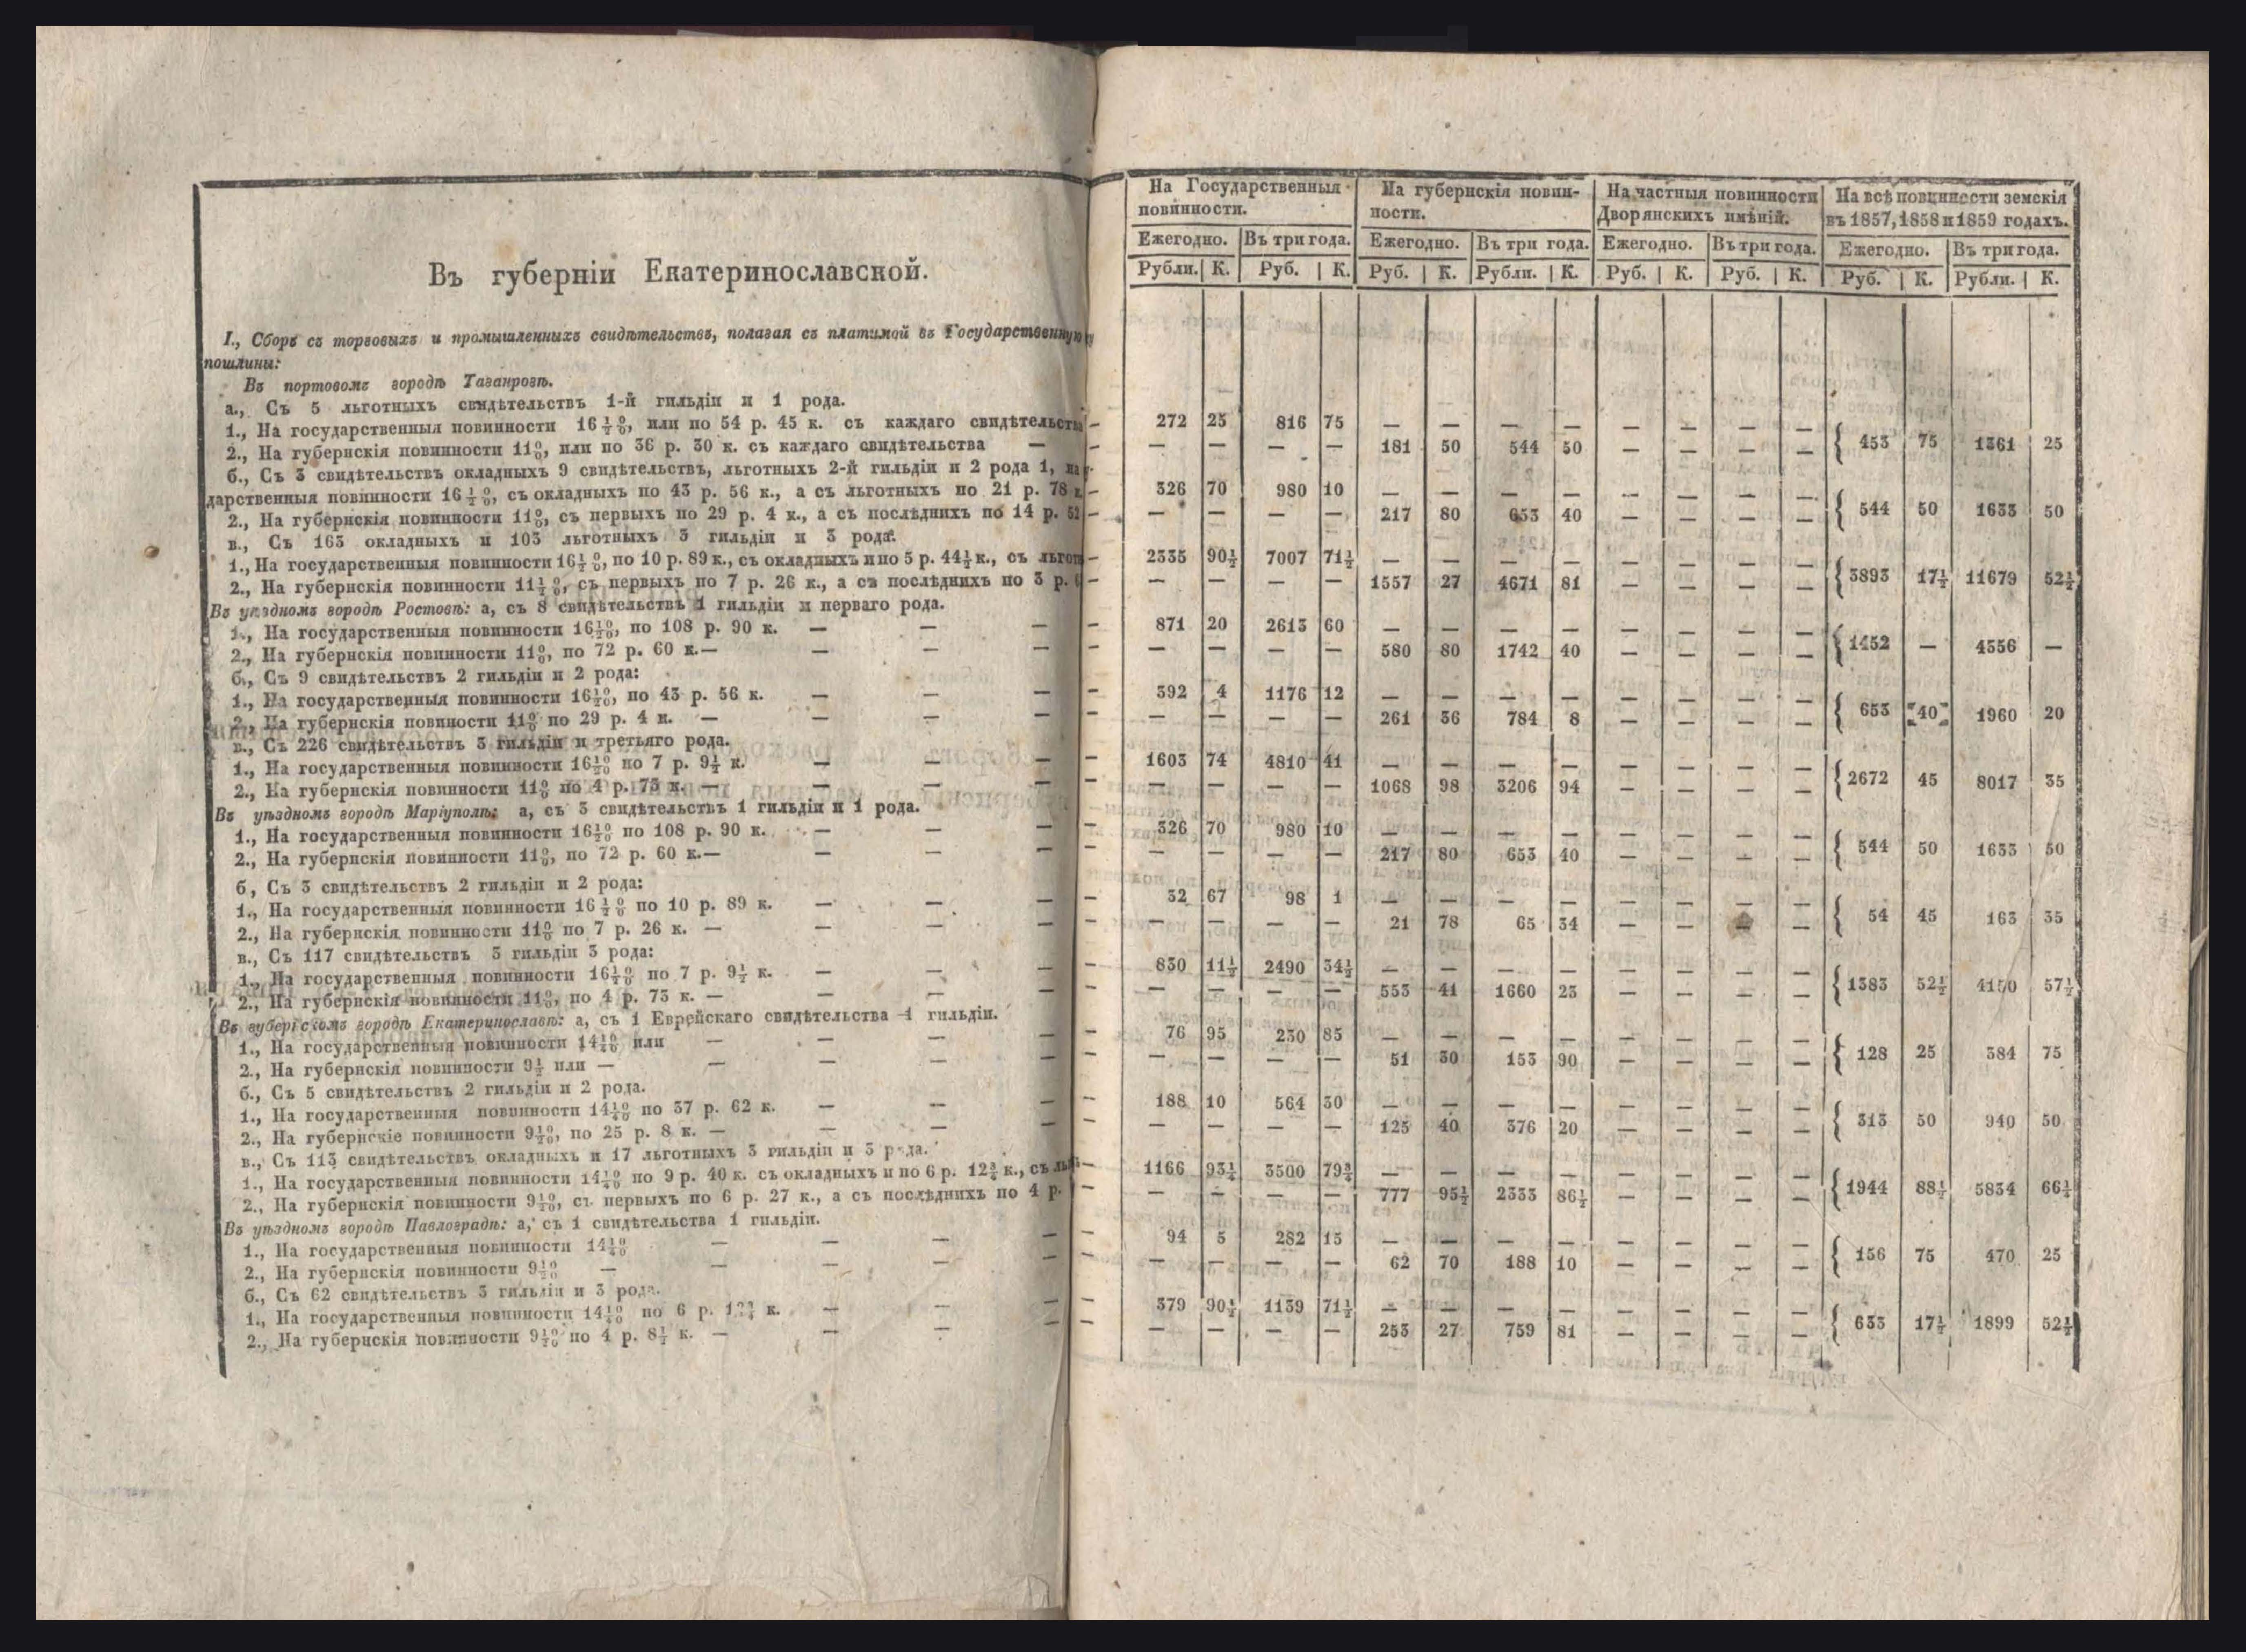 Въ губерніи Екатеринославской.
I., Сборъ съ торговыхъ и промышленныхъ свидѣтельствъ, полагая съ платимой въ Государственную
пошлины:
Въ портовомъ городѣ Таганрогѣ.
а., Съ 5 льготныхъ свидѣтельствъ 1-й гильдіи и 1 рода.
1., На государственныя повинности 16½%, или по 54 р. 45 к. съ каждаго свидѣтельства —
2., На губернскія повинности 11%, или по 36 р. 30 к. съ каждаго свидѣтельства —
б., Съ 3 свидѣтельствъ окладныхъ 9 свидѣтельствъ, льготныхъ 2-й гильдіи и 2 рода 1, на
дарственныя повинности 16½%, съ окладныхъ по 43 р. 56 к., а съ льготныхъ по 21 р. 78 к. —
2., На губернскія повинности 11%, съ первыхъ по 29 р. 4 к., а съ послѣднихъ по 14 р. 52 —
в., Съ 163 окладныхъ и 103 льготныхъ 3 гильдіи и 3 рода.
1., На государственныя повинности 16½%, по 10 р. 89 к., съ окладныхъ и по 5 р. 44½ к., съ льгот —
2., На губернскія повинности 11½%, съ первыхъ по 7 р. 26 к., а съ послѣднихъ по 3 р. —
Въ уѣздномъ городѣ Ростовѣ: а, съ 8 свидѣтельствъ 1 гильдіи и перваго рода.
1., На государственныя повинности 16½%, по 108 р. 90 к. — — — —
2., На губернскія повинности 11%, по 72 р. 60 к. — — — — —
б., Съ 9 свидѣтельствъ 2 гильдіи и 2 рода:
1., На государственныя повинности 16½%, по 43 р. 56 к. — — — —
2., На губернскія повиности 11% по 29 р. 4 к. — — — — —
в., Съ 226 свидѣтельствъ 3 гильдіи и третьяго рода.
1., На государственныя повинности 16½% по 7 р. 9½ к. — — — —
2., На губернскія повинности 11% по 4 р. 73 к. — — — — —
Въ уѣздномъ городѣ Маріуполѣ: а, съ 3 свидѣтельствъ 1 гильдіи и 1 рода.
1., На государственныя повинности 16½% по 108 р. 90 к. — — — —
2., На губернскія повинности 11%, по 72 р. 60 к. — — — — —
б, Съ 3 свидѣтельствъ 2 гильдіи и 2 рода:
1., На государственныя повинности 16½% по 10 р. 89 к. — — — —
2., На губернскія повинности 11% по 7 р. 26 к. — — — — —
в., Съ 117 свидѣтельствъ 3 гильдіи 3 рода:
1., На государственныя повинности 16½% по 7 р. 9½ к. — — — —
2., На губернскія повинности 11%, по 4 р. 73 к. — — — — —
Въ губернскомъ городѣ Екатеринославѣ: а, съ 1 Еврейскаго свидѣтельства 1 гильдіи.
1., На государственныя повинности 14¼% или — — — — —
2., На губернскія повинности 9½ или — — — — —
б., Съ 5 свидѣтельствъ 2 гильдіи и 2 рода.
1., На государственныя повинности 14¼% по 37 р. 62 к. — — — —
2., На губернскіе повинности 9½%, по 25 р. 8 к. — — — — —
в., Съ 113 свидѣтельствъ окладныхъ и 17 льготныхъ 3 гильдіи и 3 рода.
1., На государственныя повинности 14¼% по 9 р. 40 к. съ окладныхъ и по 6 р. 12¾ к., съ —
2., На губернскія повинности 9½%, съ первыхъ по 6 р. 27 к., а съ послѣднихъ по 4 р. —
Въ уѣздномъ городѣ Павлоградѣ: а, съ 1 свидѣтельства 1 гильдіи.
1., На государственныя повинности 14¼% — — — — —
2., На губернскія повинности 9½% — — — — — —
б., Съ 62 свидѣтельствъ 3 гильдіи и 3 рода.
1., На государственныя повинности 14¼% по 6 р. 12¾ к. — — — —
2., На губернскія повинности 9½% по 4 р. 8½ к. — — — — —
На Государственныя На губернскія повин- На частныя повинности На всѣ повинности земскія
повинности. ности. Дворянскихъ имѣній. въ 1857, 1858 и 1859 годахъ.
Ежегодно. Въ три года. Ежегодно. Въ три года. Ежегодно. Въ три года. Ежегодно. Въ три года.
Рубли. К. Руб. К. Руб. К. Рубли. К. Руб. К. Руб. К. Руб. К. Рубли. К.
272 25 816 75 — — — — — — — —
— — — — 181 50 544 50 — — — — { 453 75 1361 25
326 70 980 10 — — — — — — — —
— — — — 217 80 653 40 — — — — { 544 50 1633 50
2335 90½ 7007 71½ — — — — — — — —
— — — — 1557 27 4671 81 — — — — { 3893 17½ 11679 52½
871 20 2613 60 — — — — — — — —
— — — — 580 80 1742 40 — — — — { 1452 — 4356 —
392 4 1176 12 — — — — — — — —
— — — — 261 36 784 8 — — — — { 653 40 1960 20
1603 74 4810 41 — — — — — — — —
— — — — 1068 98 3206 94 — — — — { 2672 45 8017 35
326 70 980 10 — — — — — — — —
— — — — 217 80 653 40 — — — — { 544 50 1633 50
32 67 98 1 — — — — — — — —
— — — — 21 78 65 34 — — — — { 54 45 163 35
830 11½ 2490 34½ — — — — — — — —
— — — — 553 41 1660 23 — — — — { 1383 52½ 4150 57½
76 95 230 85 — — — — — — — —
— — — — 51 30 153 90 — — — — { 128 25 384 75
188 10 564 30 — — — — — — — —
— — — — 125 40 376 20 — — — — { 313 50 940 50
1166 93¼ 3500 79¾ — — — — — — — —
— — — — 777 95½ 2333 86½ — — — — { 1944 88½ 5834 66¼
94 5 282 15 — — — — — — — —
— — — — 62 70 188 10 — — — — { 156 75 470 25
379 90½ 1139 71½ — — — — — — — —
— — — — 253 27 759 81 — — — — { 633 17½ 1899 52½